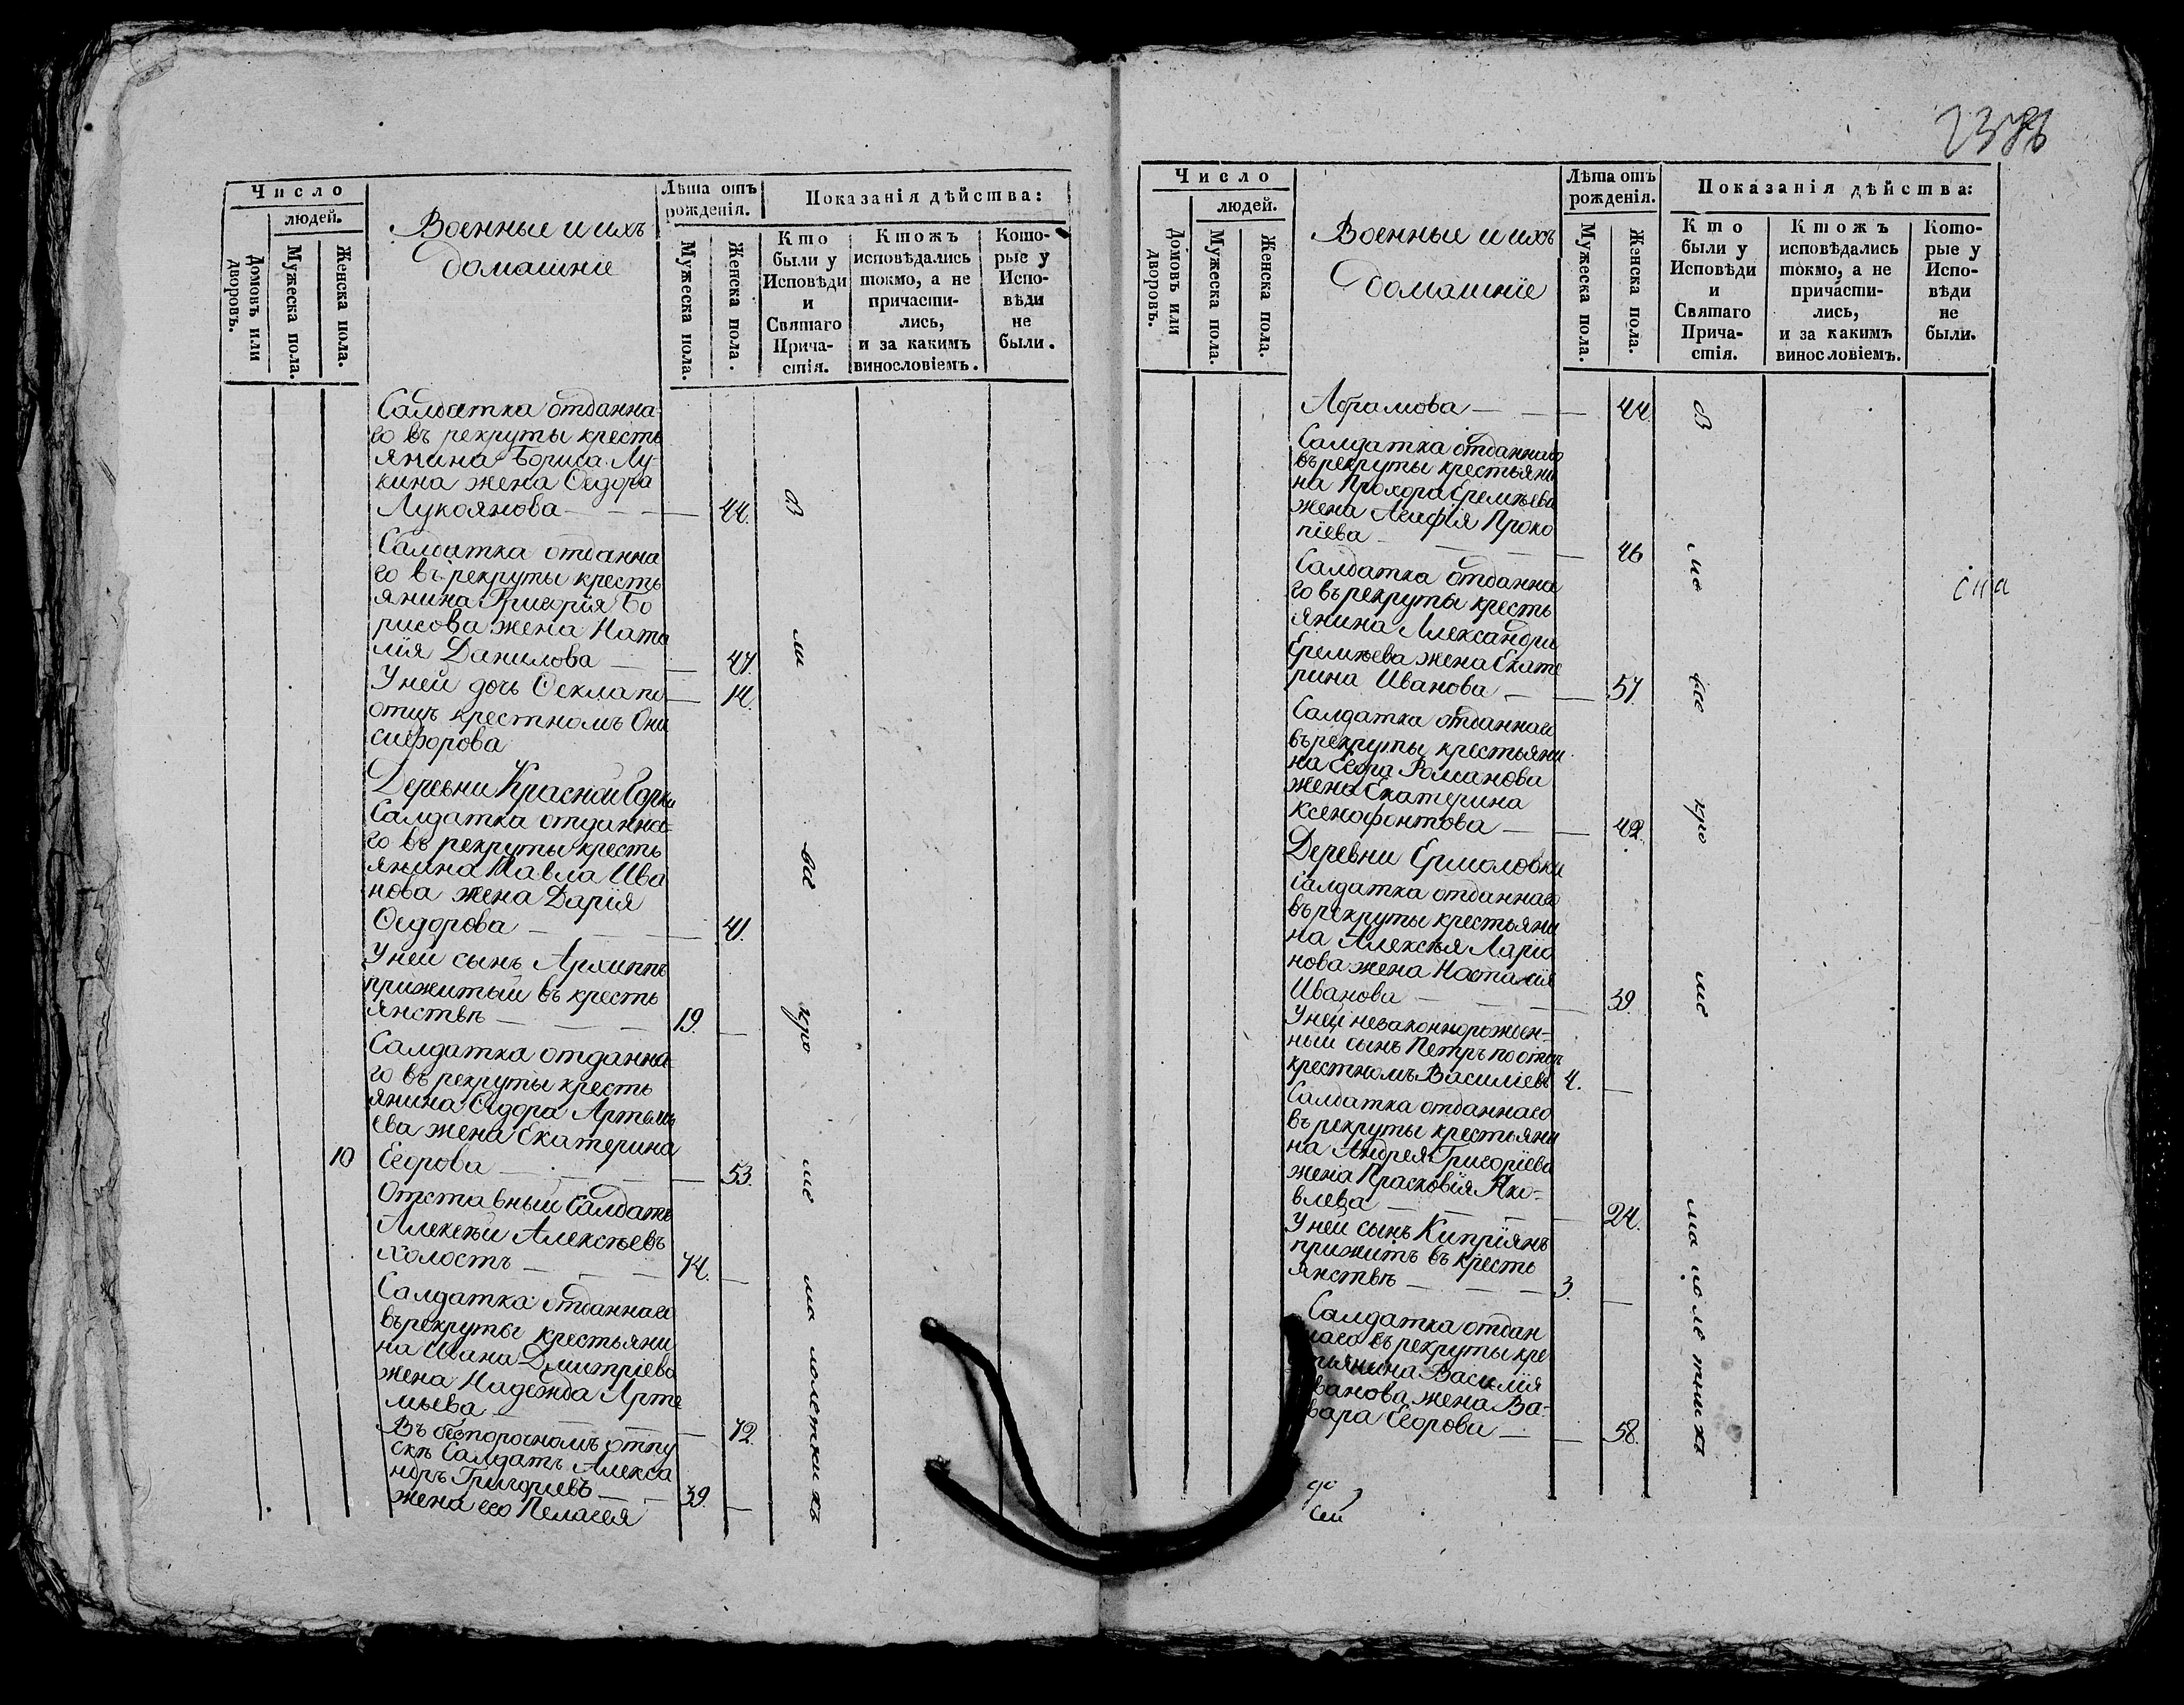 Число
людей.
Домовъ или дворовъ.
Мужеска пола.
Женска пола.
Военные и ихъ
домашніе
Лѣта отъ
рожденія.
Мужеска пола.
Женска пола.
Показанія дѣйства:
Кто
были у
Исповѣди
и
Святаго
Прича-
стія.
Ктожъ
исповѣдались
токмо, а не
причасти-
лись,
и за какимъ
винословіемъ.
Кото-
рые у
Испо-
вѣди
не
были.
Салдатка отданна-
го въ рекруты кресть
янина Бориса Лу-
кина жена Ѳедора
Лукоянова 44.
Салдатка отданна
го въ рекруты кресть
янина Григорія Бо
рисова жена Ната
лія Данилова 47.
У ней дочь Ѳекла по 14.
отцѣ крестномъ Они
сифорова
Деревни Красной Горки
Салдатка отданна-
го въ рекруты кресть
янина Павла Ива
нова жена Дарія
Ѳедорова 41.
У ней сынъ Архиппъ
прижитый въ кресть
янствѣ 19.
Салдатка отданна-
го въ рекруты кресть
янина Ѳедора Артемь
ева жена Екатерина
10 Егорова 53.
Отставный Салдатъ
Алексѣй Алексѣевъ
холостъ 74.
Салдатка отданнаго
въ рекруты крестьяни
на Ивана Дмитріева
жена Надежда Арте
мьева 72.
Въ безпорочномъ отпу
скѣ Салдатъ Алекса
ндръ Григорьевъ 39.
жена его Пелагея
вся
кро
ме
ма
лолетнихъ
Число
людей.
Домовъ или дворовъ.
Мужеска пола.
Женска пола.
Военные и ихъ
домашніе
Лѣта отъ
рожденія.
Мужеска пола.
Женска пола.
Показанія дѣйства:
Кто
были у
Исповѣди
и
Святаго
Прича-
стія.
Ктожъ
исповѣдались
токмо, а не
причасти-
лись,
и за какимъ
винословіемъ.
Кото-
рые у
Испо-
вѣди
не
были.
Абрамова 44
Салдатка отданнаго
въ рекруты крестьяни
на Прохора Еремѣева
жена Агафія Проко
піева 46
Салдатка отданна
го въ рекруты кресть
янина Александра
Еремѣева жена Екате
рина Иванова 57.
Салдатка отданнаго
въ рекруты крестьяни
на Егора Романова
жена Екатерина
Ксенофонтова 42.
Деревни Ермоловки
Салдатка отданнаго
въ рекруты крестьяни
на Алексѣя Ларіо
нова жена Наталія
Иванова 39.
У ней незаконнорожден-
ный сынъ Петръ по отцѣ
крестномъ Василіевъ 4.
Салдатка отданнаго
въ рекруты крестьяни
на Андрея Григоріева
жена Прасковія Яко-
влева 24.
У ней сынъ Кипріянъ
прижитъ въ кресть
янствѣ 3.
Салдатка отдан
наго въ рекруты кре
стьянина Василія
Иванова жена Ва-
рвара Егорова 58.
кро
ме
ма ло ле тнихъ